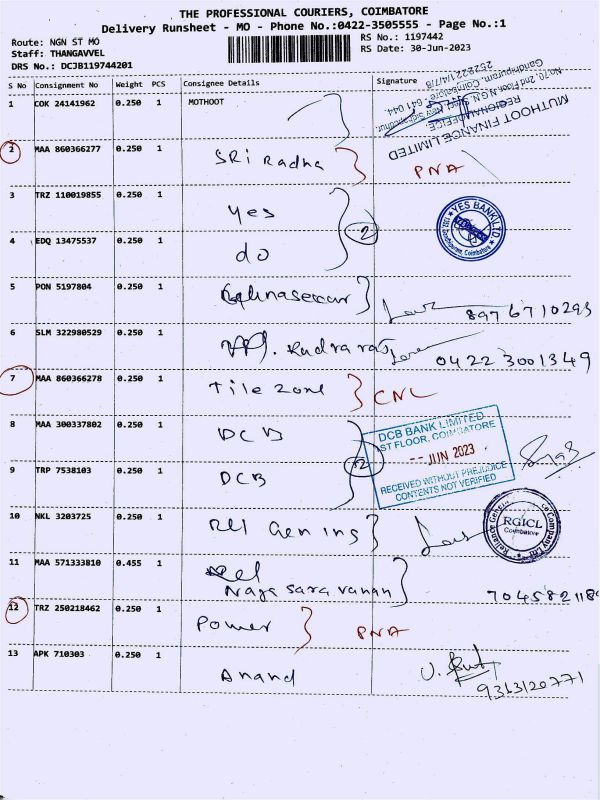 THE PROFESSIONAL COURIERS, COIMBATORE
Delivery Runsheet - MO - Phone No.:0422-3505555 - Page No.:1
Route: NGN ST MO
Staff: THANGAVVEL
DRS No.: DCJB119744201
RS No.: 1197442
RS Date: 30-Jun-2023
S No Consignment No Weight PCS Consignee Details Signature
1 COK 24141962 0.250 1 MOTHOOT
MUTHOOT FINANCE LIMITED
REGIONAL OFFICE
No.70, 2nd Floor, N.G.N. Street, New Sidhapudur,
Gandhipuram, Coimbatore - 641 044.
2 MAA 860366277 0.250 1 SRi Radha PNA
3 TRZ 110019855 0.250 1 Yes
2
YES BANK LTD.
Coimbatore
4 EDQ 13475537 0.250 1 do
5 PON 5197804 0.250 1 8976710293
6 SLM 322980529 0.250 1 Rudraraj 0422 3001349
7 MAA 860366278 0.250 1 Tile Zone CNL
8 MAA 300337802 0.250 1 DCB
2
DCB BANK LIMITED
1ST FLOOR, COIMBATORE
-- JUN 2023
RECEIVED WITHOUT PREJUDICE
CONTENTS NOT VERIFIED
9 TRP 7538103 0.250 1 DCB
10 NKL 3203725 0.250 1 Rel Gen ins
RGICL
Coimbatore
Reliance General Company Ltd
11 MAA 571333810 0.455 1 Rel
Naga saravanan 704582118
12 TRZ 250218462 0.250 1 Power PNA
13 APK 710303 0.250 1 Anand 9313120771